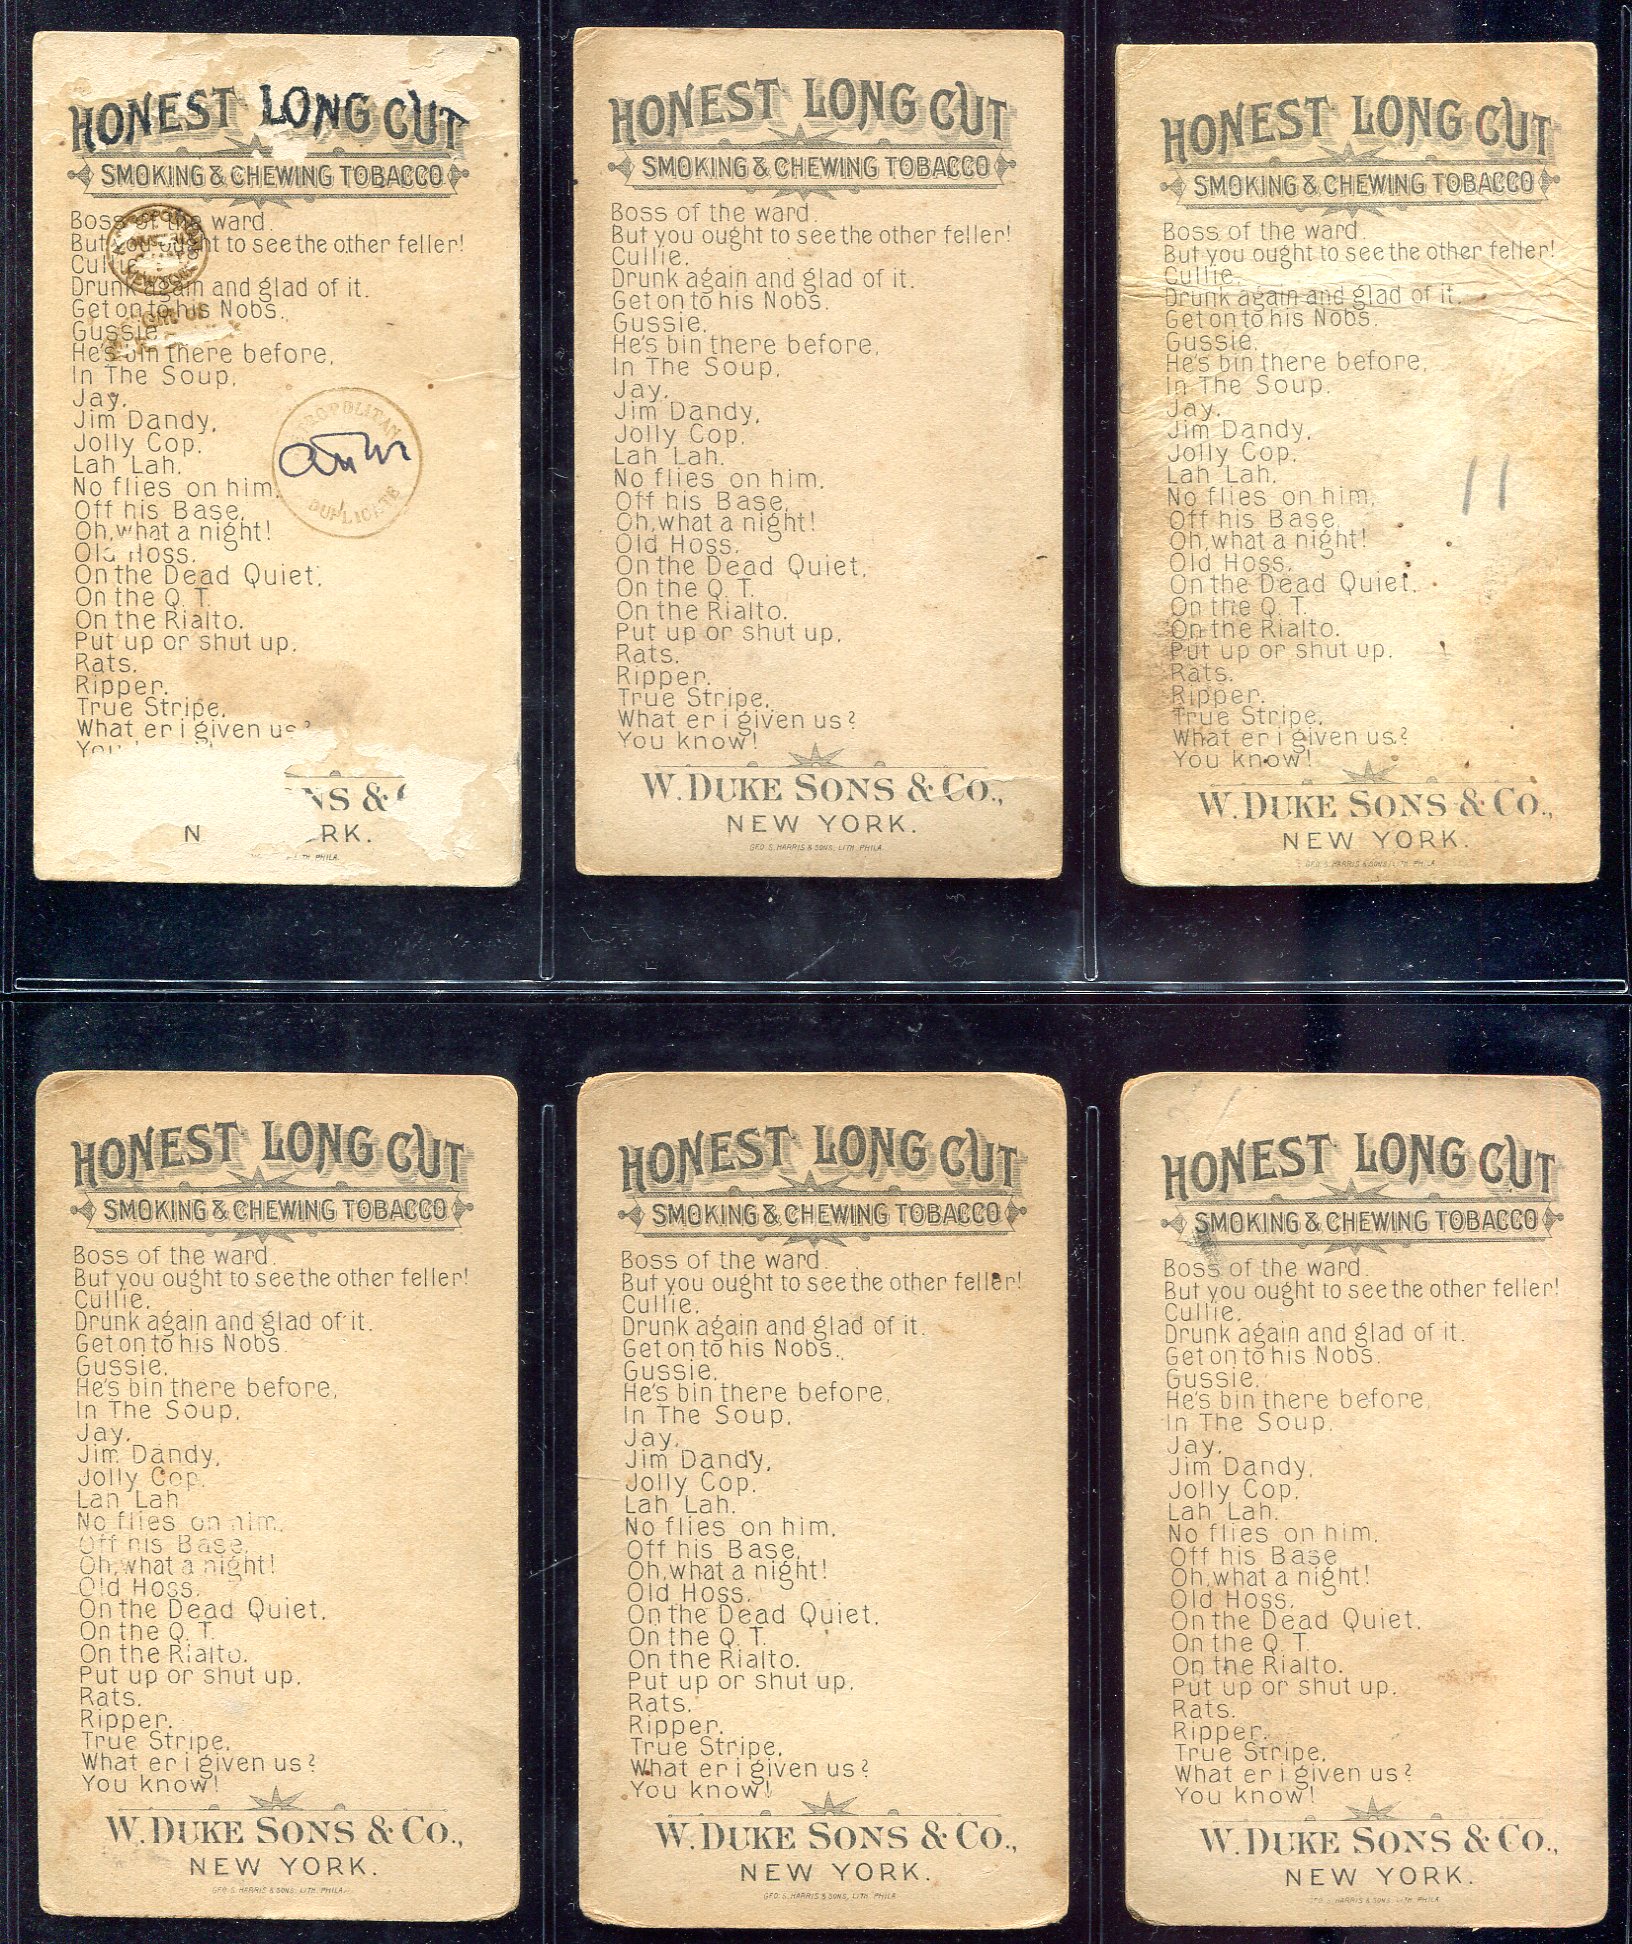 HONEST LONG CUT
SMOKING & CHEWING TOBACCO
Boss of the ward.
But you ought to see the other feller!
Cullie.
Drunk again and glad of it.
Get on to his Nobs.
Gussie.
He's bin there before.
In The Soup.
Jay.
Jim Dandy.
Jolly Cop.
Lah Lah.
No flies on him.
Off his Base.
Oh, what a night!
Old Hoss.
On the Dead Quiet.
On the Q. T.
On the Rialto.
Put up or shut up.
Rats.
Ripper.
True Stripe.
What er i given us?
NS &
N RK.
LITH. PHILA.
METROPOLITAN
DUPLICATE
HONEST LONG CUT
SMOKING & CHEWING TOBACCO
Boss of the ward.
But you ought to see the other feller!
Cullie.
Drunk again and glad of it.
Get on to his Nobs.
Gussie.
He's bin there before.
In The Soup.
Jay.
Jim Dandy.
Jolly Cop.
Lah Lah.
No flies on him.
Off his Base.
Oh, what a night!
Old Hoss.
On the Dead Quiet.
On the Q. T.
On the Rialto.
Put up or shut up.
Rats.
Ripper.
True Stripe.
What er i given us?
You know!
W. DUKE SONS & CO.,
NEW YORK.
GEO. S. HARRIS & SONS, LITH. PHILA.
HONEST LONG CUT
SMOKING & CHEWING TOBACCO
Boss of the ward.
But you ought to see the other feller!
Cullie.
Drunk again and glad of it.
Get on to his Nobs.
Gussie.
He's bin there before.
In The Soup.
Jay.
Jim Dandy.
Jolly Cop.
Lah Lah.
No flies on him.
Off his Base.
Oh, what a night!
Old Hoss.
On the Dead Quiet.
On the Q. T.
On the Rialto.
Put up or shut up.
Rats.
Ripper.
True Stripe.
What er i given us?
You know!
11
W. DUKE SONS & CO.,
NEW YORK.
GEO. S. HARRIS & SONS, LITH. PHILA.
HONEST LONG CUT
SMOKING & CHEWING TOBACCO
Boss of the ward.
But you ought to see the other feller!
Cullie.
Drunk again and glad of it.
Get on to his Nobs.
Gussie.
He's bin there before.
In The Soup.
Jay.
Jim Dandy.
Jolly Cop.
Lah Lah
No flies on him.
Off his Base.
Oh, what a night!
Old Hoss.
On the Dead Quiet.
On the Q. T.
On the Rialto.
Put up or shut up.
Rats.
Ripper.
True Stripe.
What er i given us?
You know!
W. DUKE SONS & CO.,
NEW YORK.
GEO. S. HARRIS & SONS, LITH. PHILA.
HONEST LONG CUT
SMOKING & CHEWING TOBACCO
Boss of the ward.
But you ought to see the other feller!
Cullie.
Drunk again and glad of it.
Get on to his Nobs.
Gussie.
He's bin there before.
In The Soup.
Jay.
Jim Dandy.
Jolly Cop.
Lah Lah.
No flies on him.
Off his Base.
Oh, what a night!
Old Hoss.
On the Dead Quiet.
On the Q. T.
On the Rialto.
Put up or shut up.
Rats.
Ripper.
True Stripe.
What er i given us?
You know!
W. DUKE SONS & CO.,
NEW YORK.
GEO. S. HARRIS & SONS, LITH. PHILA
HONEST LONG CUT
SMOKING & CHEWING TOBACCO
Boss of the ward.
But you ought to see the other feller!
Cullie.
Drunk again and glad of it.
Get on to his Nobs.
Gussie.
He's bin there before.
In The Soup.
Jay.
Jim Dandy.
Jolly Cop.
Lah Lah.
No flies on him.
Off his Base
Oh, what a night!
Old Hoss.
On the Dead Quiet.
On the Q. T.
On the Rialto.
Put up or shut up.
Rats.
Ripper.
True Stripe.
What er i given us?
You know!
W. DUKE SONS & CO.,
NEW YORK.
GEO. S. HARRIS & SONS, LITH. PHILA